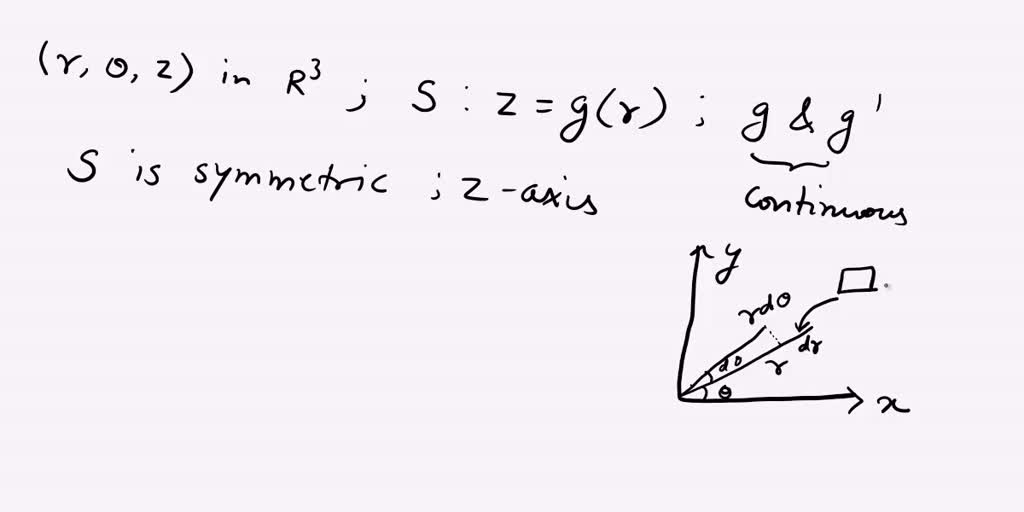 (r, θ, z) in R³ ; S : z = g(r) ; g & g'
S is symmetric ; z-axis
continuous
y
rdθ
dr
dθ
r
θ
x